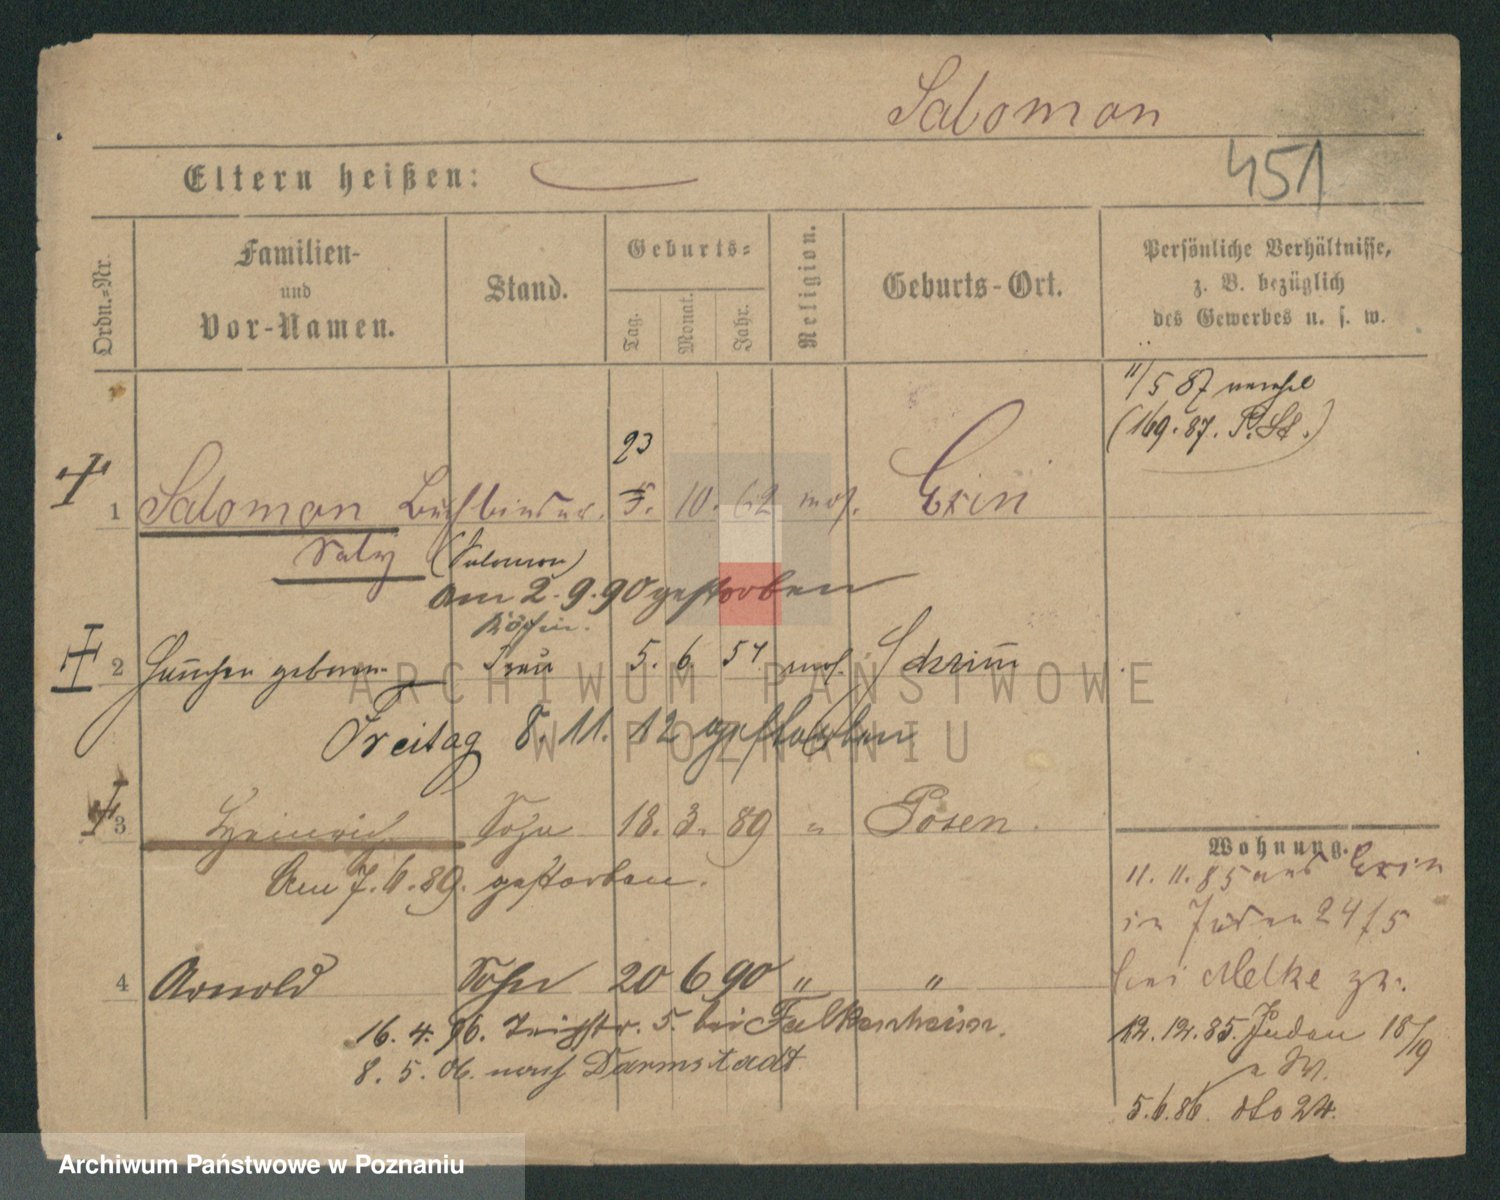 Salomon
451
Eltern heißen:
Ordn.-Nr.
Familien-
und
Vor-Namen.
Stand.
Geburts-
Tag.
Monat.
Jahr.
Religion.
Geburts-Ort.
Persönliche Verhältnisse,
z. B. bezüglich
des Gewerbes u. s. w.
11/5 87
(169. 87. P. St.)
23
1 Salomon Buchbinder. 5. 10. 62 mos. Exin
Saly (Salomon)
am 2. 9. 90 gestorben
Köchin.
2 Hannchen geborene Frau 5. 6. 57 mos. Schrim
Freitag 8. 11. 12 gestorben
3 Heinrich Sohn 18. 3. 89 " Posen.
Am 7. 6. 89. gestorben.
4 Arnold Sohn 20 6 90 " "
16. 4. 06. 5. bei Falkenheim.
8. 5. 06. nach Darmstadt
Wohnung.
11. 11. 85 aus Exin
in Juden 24/5
bei Melke
12. 12. 85. Juden 18/19
5. 6. 86. dto 24.
ARCHIWUM PAŃSTWOWE
W POZNANIU
Archiwum Państwowe w Poznaniu